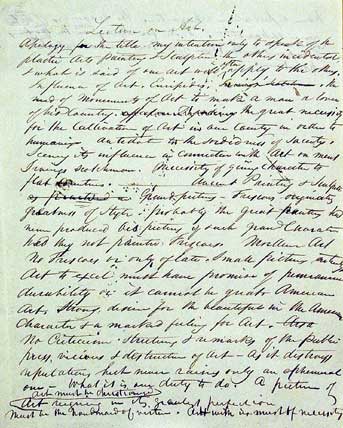 Lecture on Art.
Apology for the title my intention only to speak of the
plastic Arts Painting & Sculpture & others incidental
& what is said of one art will often apply to the others.
Influence of Art. Euripides.
need of Monuments of Art to make a man a lover
of his Country. the great necessity
for the Cultivation of Art in our Country in order to
humanize Antidote to the sordidness of Society.
Scenery its influence in connection with Art on men
Irving Necessity of giving Character to
Ancient Painting & Sculpture
Grand pictures Frescoes originate
greatness of Style. probably the great painting the
men produced big pictures of such grand Character
had they not painted Frescoes. Modern Art
No Frescoes or only of late. Small pictures
Art to excel must have promise of permanence
durability or it cannot be great. American
Art. Strong desire for the beautiful in the American
Character & a marked feeling for Art.
No Criticism. Strictures & remarks of the public
press, vicious & destructive of Art - As it destroys
reputations but never raises only an ephemeral
one - What it is our duty to do. A picture of
Art must be Christianized
Art reigning in its greatest perfection
must be the handmaid of virtue. Art with us must of necessity